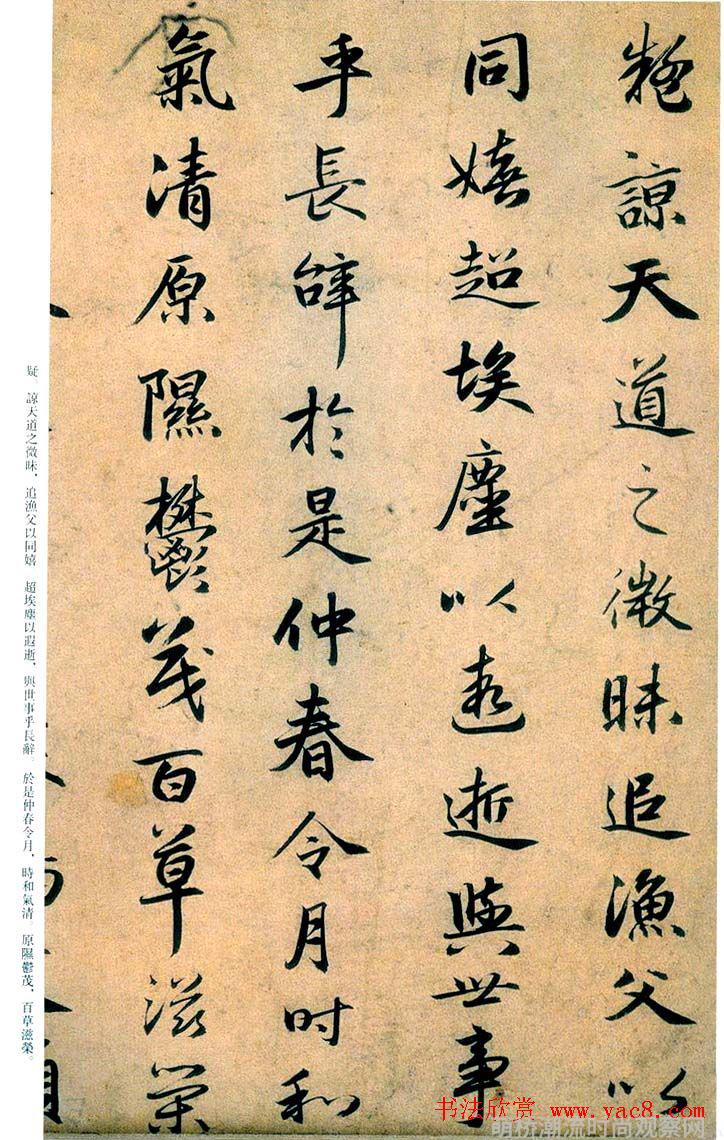 疑諒天道之微昧追漁父以
同嬉超埃塵以遐逝與世事
乎長辭於是仲春令月时和
氣清原隰鬱茂百草滋榮
疑。諒天道之微昧，追漁父以同嬉 超埃塵以遐逝，與世事乎長辭。於是仲春令月，時和氣清。原隰鬱茂，百草滋榮。
书法欣赏 www.yac8.com
萌桥潮流时尚观察网